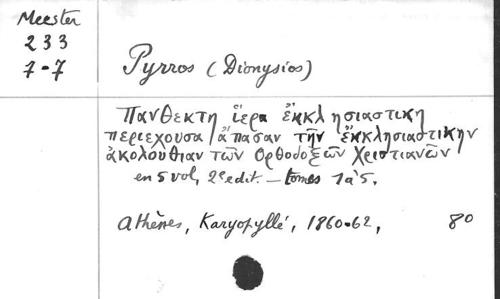 Meester
233
7-7
Pyrros (Dionysios)
Πανθεκτη ἵερα ἔκκλησιαστικη
περιεχουσα ἅπασαν τὴν ἔκκλησιαστικην
ἀκολουθιαν τῶν Ορθοδοξῶν Χριστιανῶν
en 5 vol, 2e edit. – tomes 1 à 5.
Athènes, Karyophyllé, 1860-62, 80